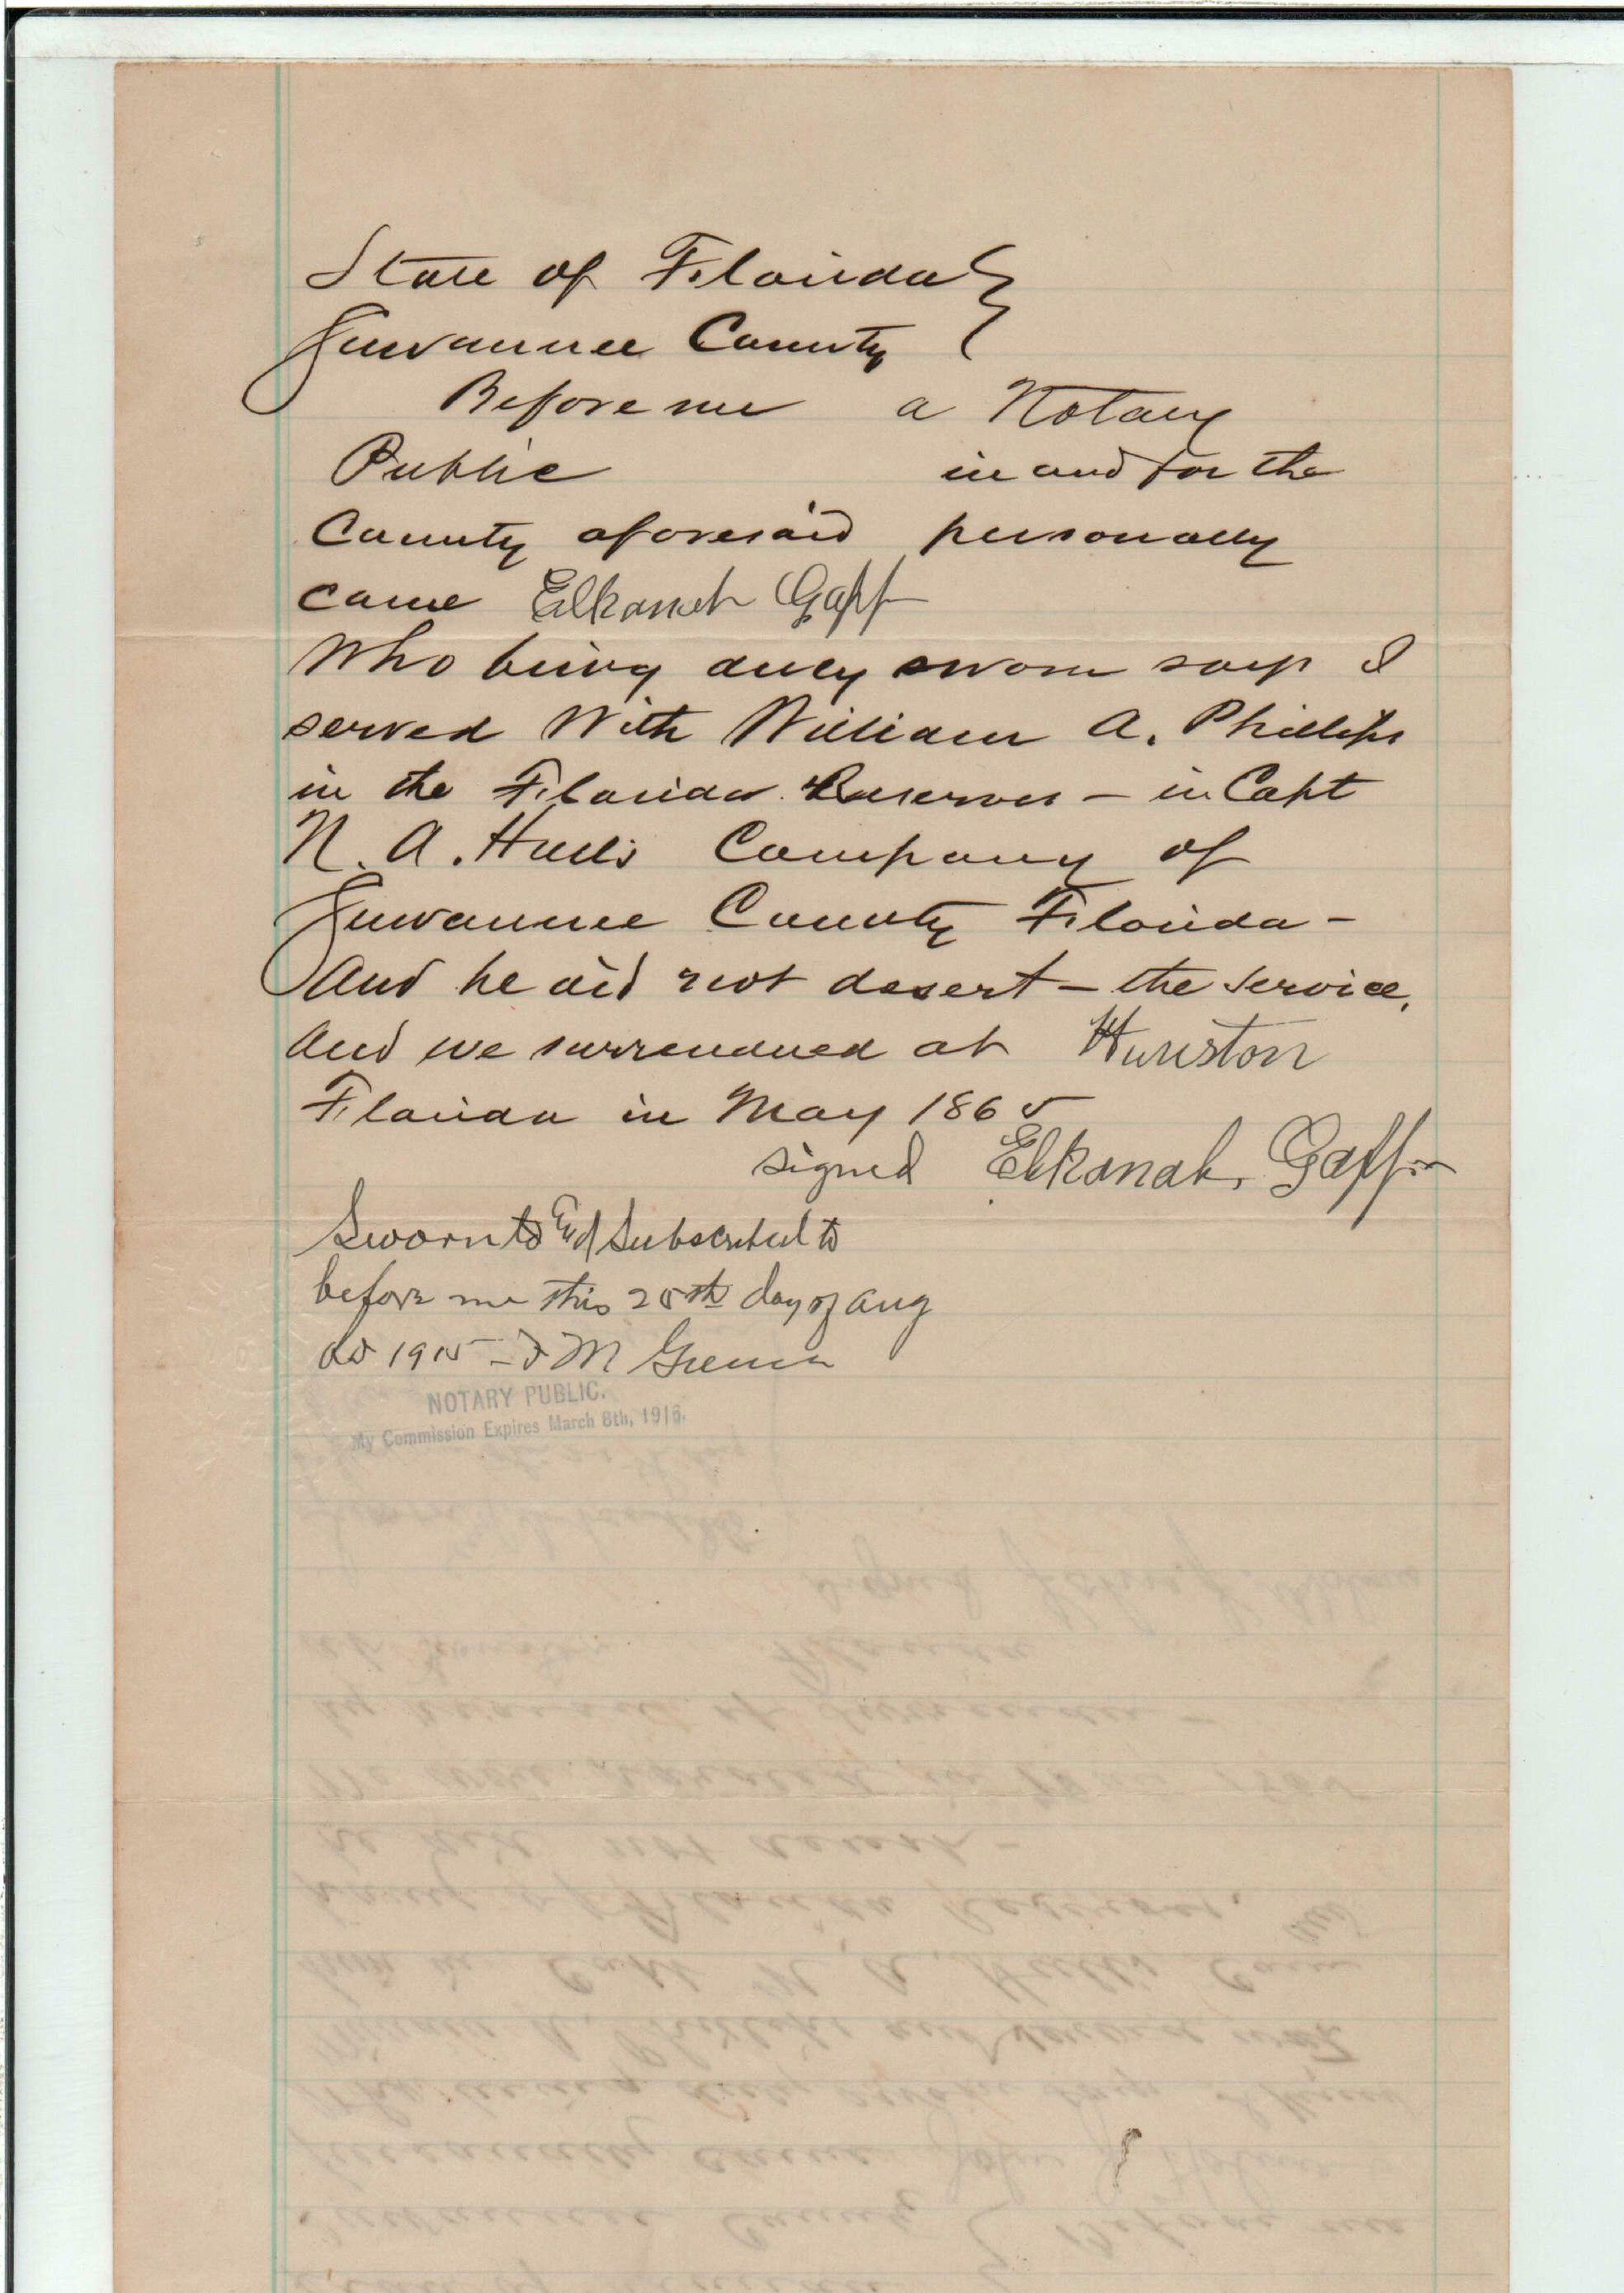 State of Florida
Suwannee County
Before me a Notary
Public in and for the
County aforesaid personally
came Elkanah
Who being duly sworn says I
served With William A. Phillips
in the Florida Reserves - in Capt
N. A. Hull's Company of
Suwannee County Florida -
And he did not desert - the service.
And we surrendered at Huston
Florida in May 1865
signed Elkanah
Sworn to and Subscribed to
before me this 25th day of Aug
AD 1915 - M
NOTARY PUBLIC.
My Commission Expires March 8th, 1916.